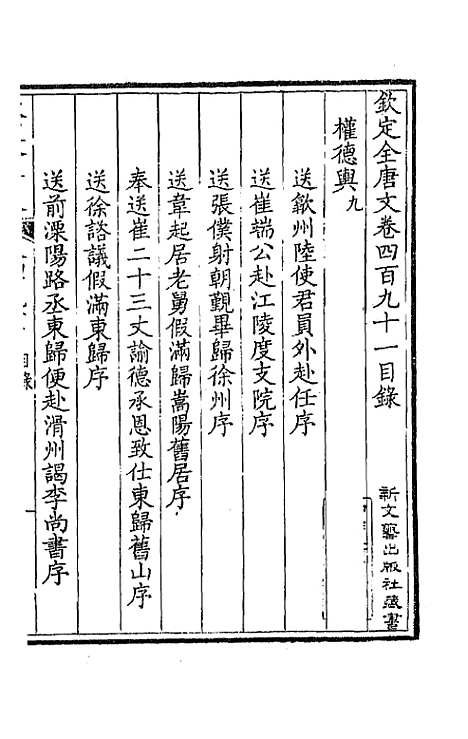 欽定全唐文卷四百九十一目錄
新文藝出版社藏書
權德輿九
送歙州陸使君員外赴任序
送崔端公赴江陵度支院序
送張僕射朝覲畢歸徐州序
送韋起居老舅假滿歸嵩陽舊居序
奉送崔二十三丈諭德承恩致仕東歸舊山序
送徐諮議假滿東歸序
送前溧陽路丞東歸便赴滑州謁李尚書序
目錄